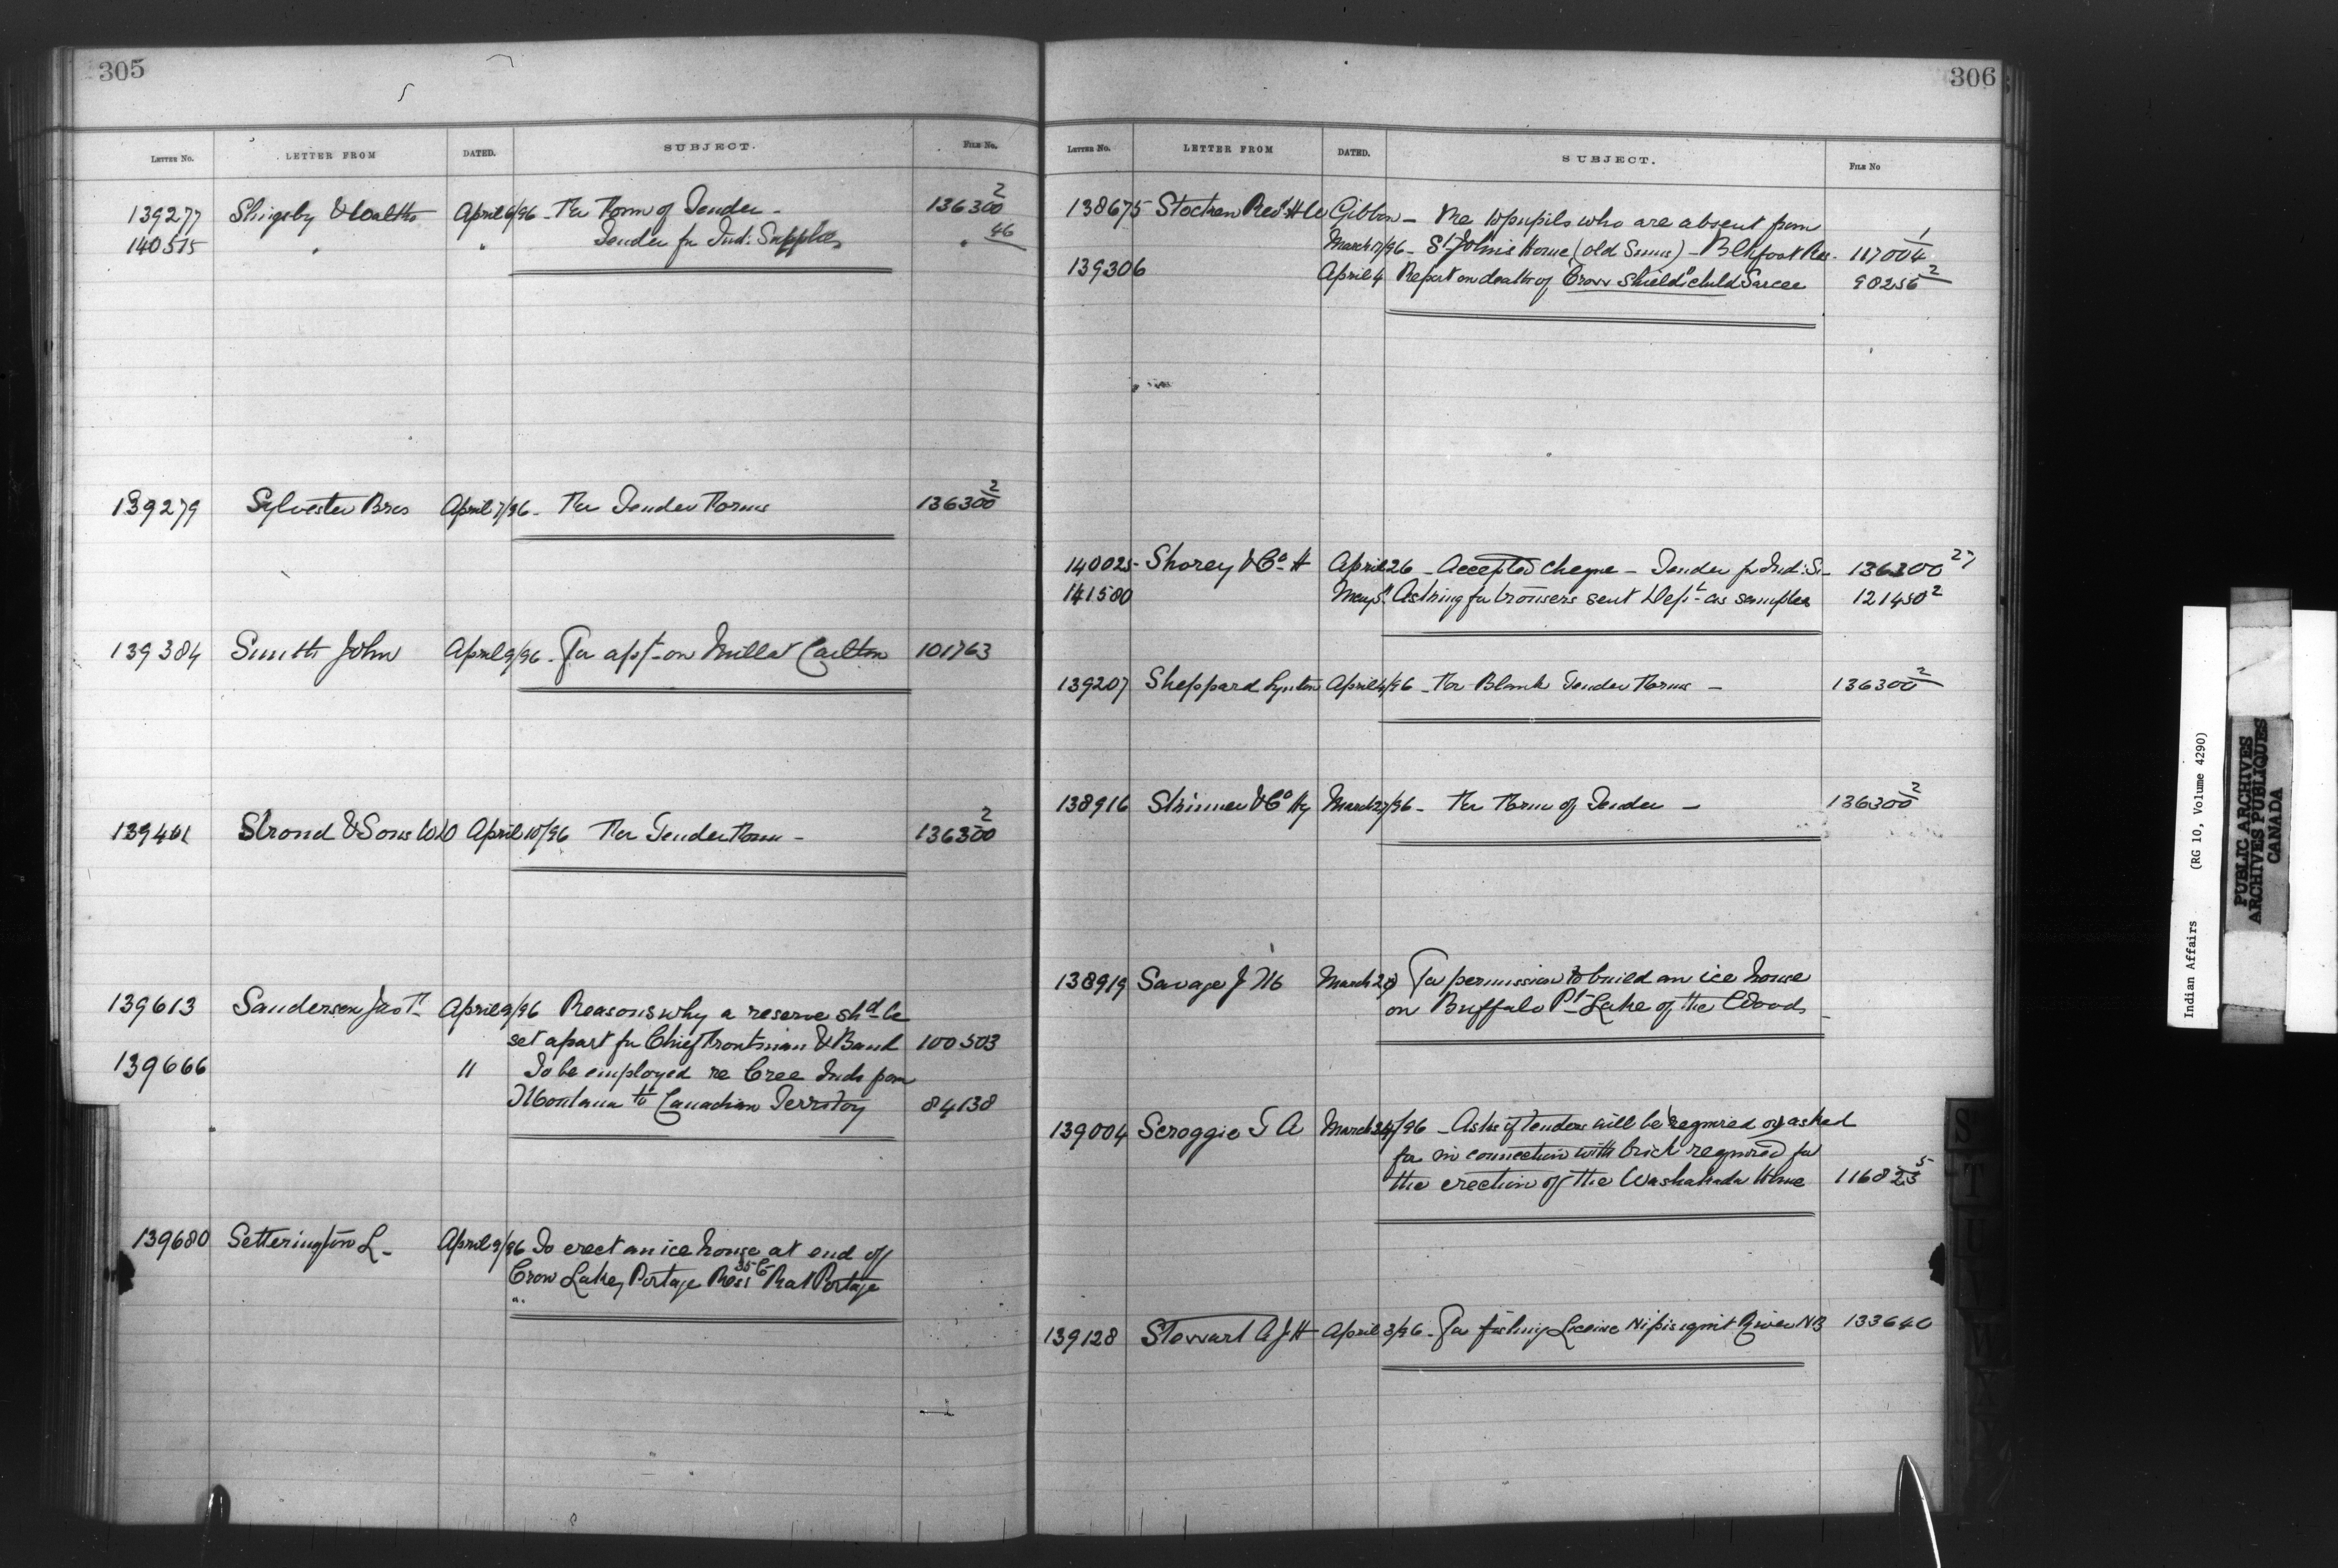 305
LETTER NO. LETTER FROM DATED. SUBJECT. FILE NO.
139277 Slingsby & Walter April 6/96 - For Form of Tender - 136300 2
140515 " " Tender for Ind: Supplies " 46
139279 Sylvester Bros April 7/96 - For Tender Forms 136300 2
139384 Smith John April 9/96 - For appt on Mill at Carlton 101763
139401 Strond & Sons W D April 10/96 For Tender Form - 136300 2
139613 Sanderson Jno T. April 9/96 Reasons why a reserve shd be
set apart for Chief Frontman & Band 100503
139666 " To be employed re Cree Inds from
Montana to Canadian Territory 84138
139680 Setterington L - April 9/96 To erect an ice house at end of
Crow Lake, Portage Resi 35 C Rat Portage
306
LETTER NO. LETTER FROM DATED. SUBJECT. FILE NO
138675 Stocken Revd H W Gibbon - Re 10 pupils who are absent from
March 17/96 - St John's Home (old Suns) - Blkfoot Res. 117004 1
139306 April 4 Report on death of Crow Shield's child Sarcee 90256 2
140025 Shorey & Co H April 26 - Accepted cheque - Tender for Ind: S. - 136300 27
141580 May 5 Asking for trousers sent Dept as samples 121450 2
139207 Sheppard Lynton April 4/96 - For Blank Tender Forms - 136300 2
138916 Skinner & Co Hy March 27/96 - For Form of Tender - 136300 2
138919 Savage J M March 28 For permission to build an ice house
on Buffalo Pt - Lake of the Woods
139004 Scroggie T A March 24/96 - Asks if tenders will be required or asked
for in connection with brick required for
the erection of the Washakada Home 116823 5
139128 Stewart A J H April 3/96 - For fishing License Nipisiguit River NB 133640
S
T
U
V
W
Indian Affairs (RG 10, Volume 4290)
PUBLIC ARCHIVES
ARCHIVES PUBLIQUES
CANADA